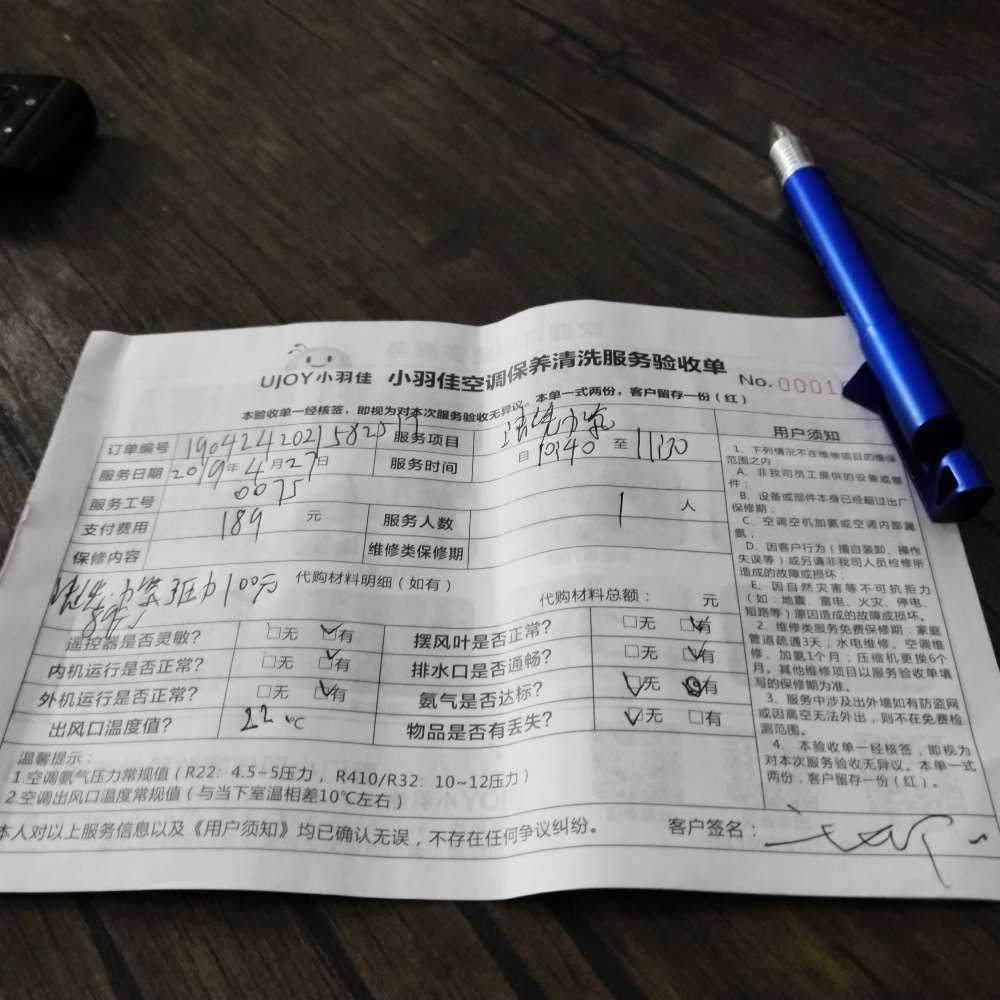 UJOY小羽佳 小羽佳空调保养清洗服务验收单 No.0001
本验收单一经核签，即视为对本次服务验收无异议。本单一式两份，客户留存一份（红）
订单编号 服务项目
服务日期 2019年4月27日 服务时间 自 10:40 至 11:30
服务工号 0075
支付费用 189 元 服务人数 1 人
保修内容 维修类保修期
代购材料明细（如有）
100元
代购材料总额： 元
遥控器是否灵敏？ □无 ☑有 摆风叶是否正常？ □无 ☑有
内机运行是否正常？ □无 ☑有 排水口是否通畅？ □无 ☑有
外机运行是否正常？ □无 ☑有 氨气是否达标？ ☑无 有
出风口温度值？ 22 ℃ 物品是否有丢失？ ☑无 □有
温馨提示：
1.空调氨气压力常规值（R22：4.5~5压力，R410/R32：10~12压力）
2.空调出风口温度常规值（与当下室温相差10℃左右）
本人对以上服务信息以及《用户须知》均已确认无误，不存在任何争议纠纷。 客户签名：
用户须知
1、下列情况不在维修项目的维保
范围之内：
A、非我司员工提供的设备或部
件；
B、设备或部件本身已经超过出厂
保修期；
C、空调空机加氨或空调内部漏
氨；
D、因客户行为（擅自装卸、操作
失误等）或另请非我司人员检修所
造成的故障或损坏；
E、因自然灾害等不可抗拒力
（如：地震、雷电、火灾、停电、
短路等）原因造成的故障或损坏。
2、维修类服务免费保修期：家庭
管道疏通3天；水电维修、空调维
修、加氨1个月；压缩机更换6个
月。其他维修项目以服务验收单填
写的保修期为准。
3、服务中涉及出外墙如有防盗网
或因高空无法外出，则不在免费检
测范围。
4、本验收单一经核签，即视为
对本次服务验收无异议。本单一式
两份，客户留存一份（红）。